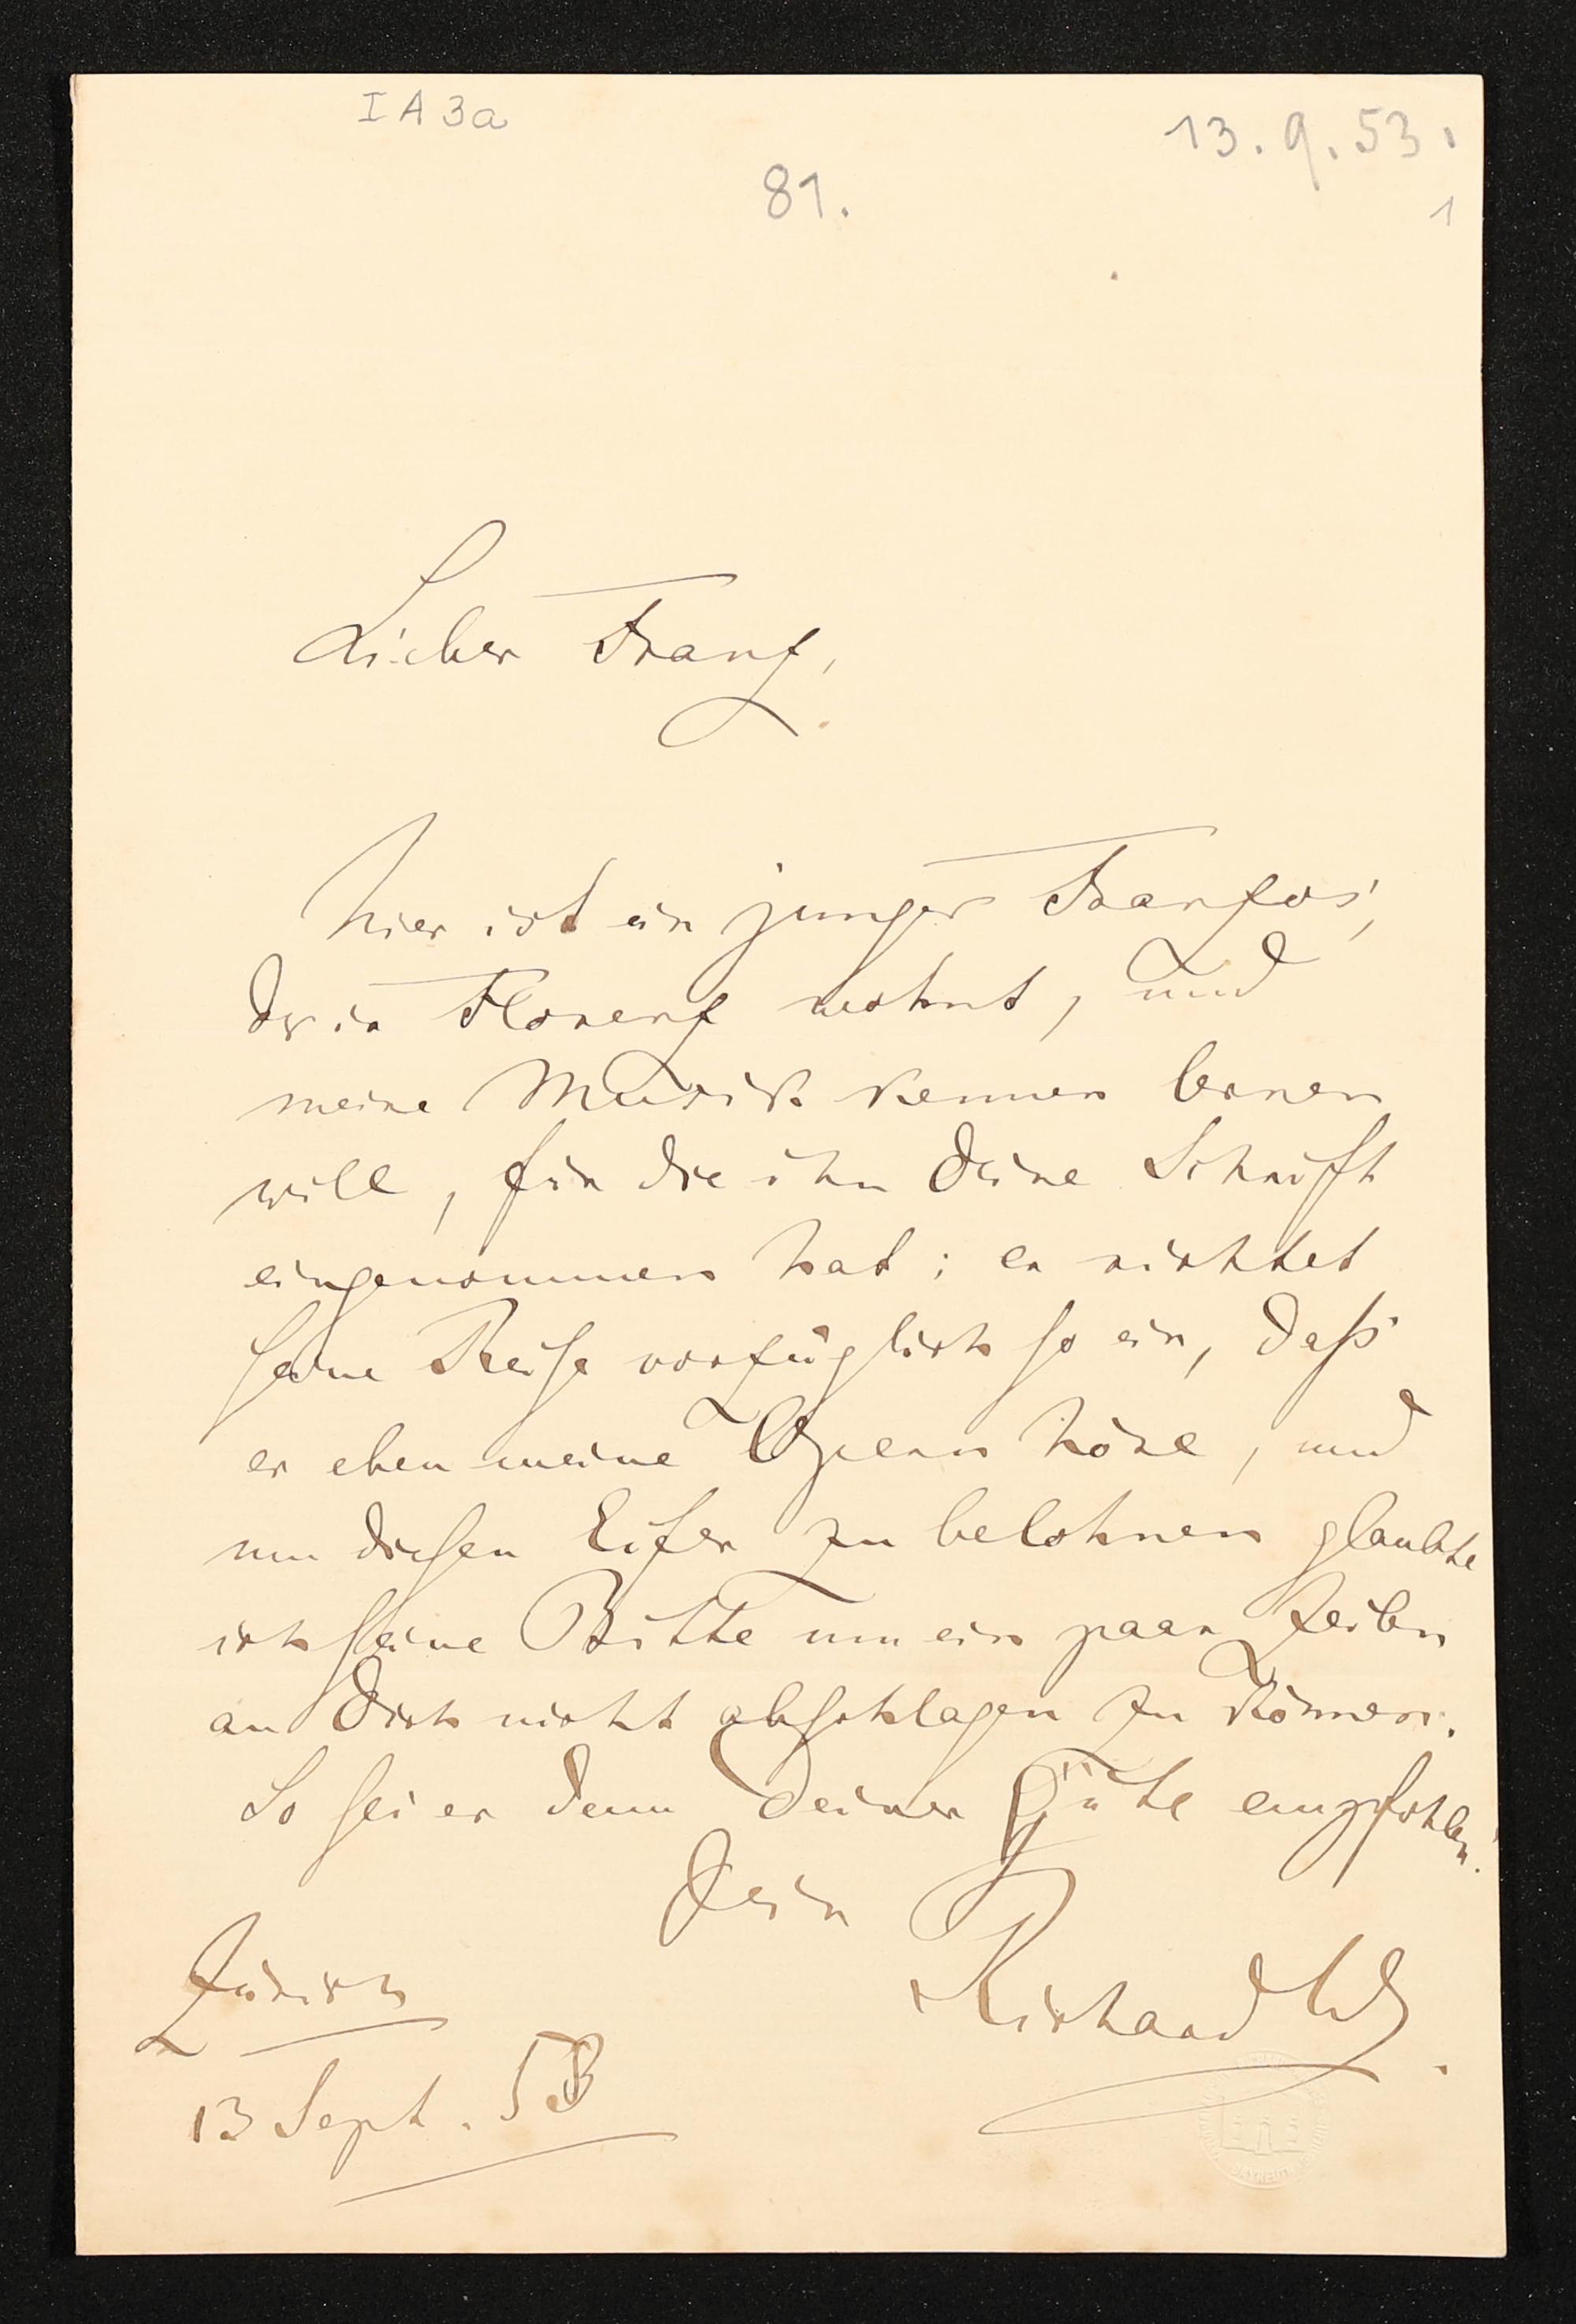 I A 3a
13.9.53.
81.
1
Lieber Franz,
hier ist ein junger Franzos',
der in Florenz wohnt, und
meine Musik kennen lernen
will, für die ihn deine Schrift
eingenommen hat; er richtet
seine Reise vorzüglich so ein, daß
er eben meine Opern höre, und
um diesen Eifer zu belohnen glaubte
ich seine Bitte um ein paar Zeilen
an dich nicht abschlagen zu können.
So sei er denn deiner Güte empfohlen!
Dein
Richard W.
Zürich
13 Sept. 53